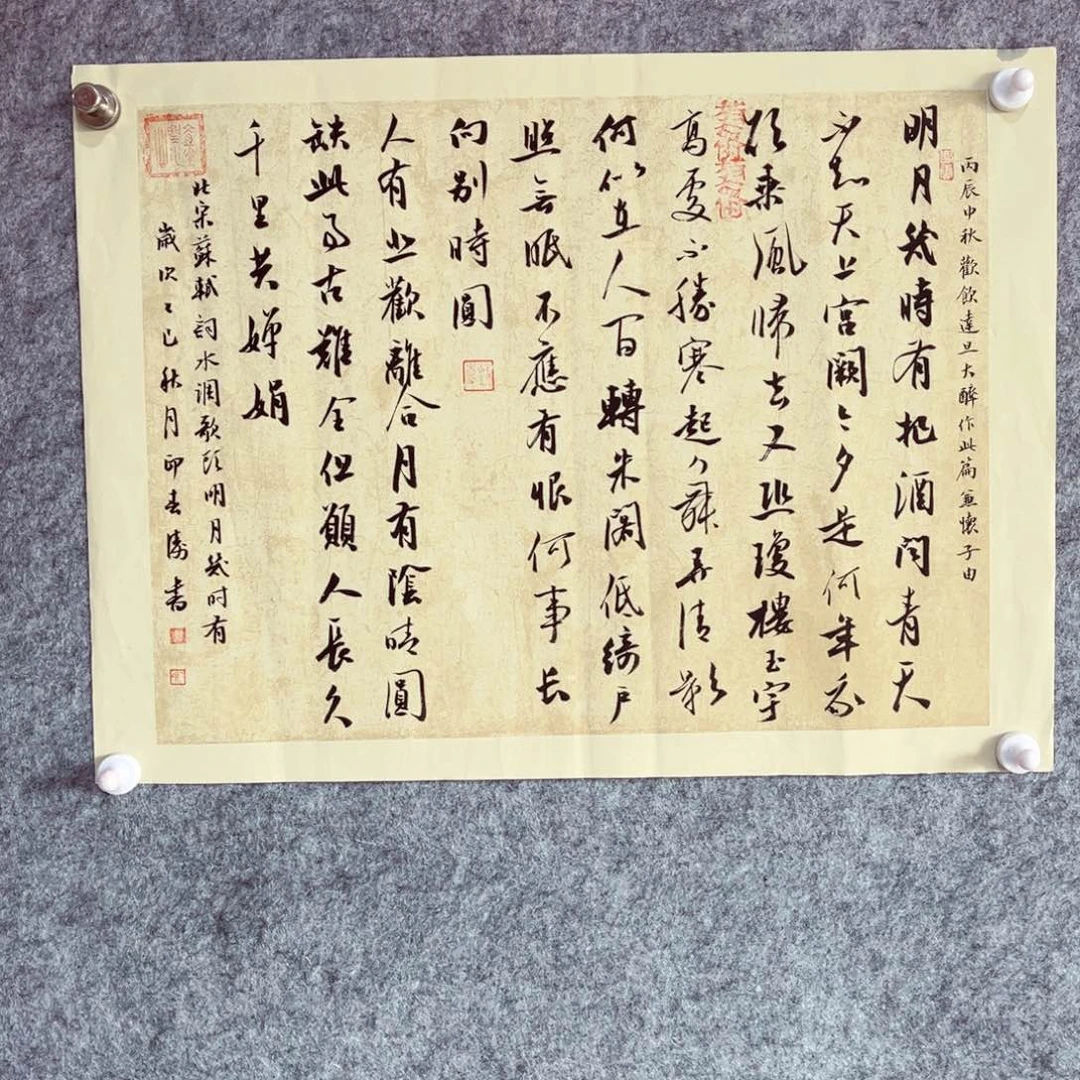 丙辰中秋歡飲達旦大醉作此篇兼懷子由
明月幾時有把酒問青天
不知天上宮闕今夕是何年我
欲乘風歸去又恐瓊樓玉宇
高處不勝寒起舞弄清影
何似在人間轉朱閣低綺戶
照無眠不應有恨何事长
向别時圓
人有悲歡離合月有陰晴圓
缺此事古難全但願人長久
千里共嬋娟
北宋蘇軾詞水調歌頭明月幾时有
歲次乙巳秋月邱春濤書